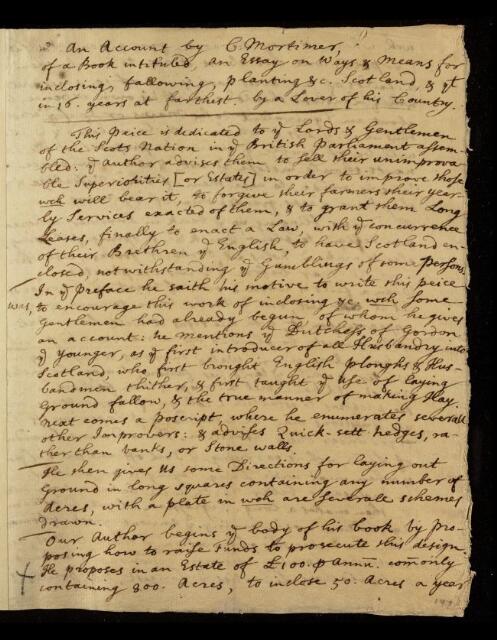 An Account by C. Mortimer,
of a Book intituled, an Essay on Ways & Means for
inclosing, fallowing, planting &c. Scotland, & yt
in 16. years at farthest. by a Lover of his Country.
This Peice is dedicated to ye Lords & Gentlemen
of the Scots Nation in ye British Parliament assem-
bled: ye Author advises them to sell their unimprova-
ble Superiorities [or Estates] in order to improve those
wch will bear it, to forgive their farmers their year-
ly Services exacted of them, & to grant them Long
Leases, finally to enact a Law, with ye concurrence
of their Brethren ye English, to have Scotland en-
closed, notwithstanding ye Grumblings of some Persons.
In ye Preface he saith his motive to write this peice
was, to encourage this work of inclosing &c. wch some
Gentlemen had already begun, of whom he gives
an account: he mentions ye Dutchess of Gordon
ye younger, as ye first introducer of all Husbandry into
Scotland, who first brought English Ploughs & Hus-
bandmen thither, & first taught ye use of laying
Ground fallow, & the true manner of making Hay.
next comes a poscript, where he enumerates severall
other Improvers: & advises Quick-sett hedges, ra-
ther than banks, or Stone walls.
He then gives us some Directions for laying out
Ground in long squares containing any number of
Acres, with a plate in wch are severall schemes
drawn.
Our Author begins ye body of his book by pro-
posing how to raise Funds to prosecute this design.
He proposes in an Estate of £100. p Annũ. comonly
containing 800. Acres, to inclose 50. Acres a year